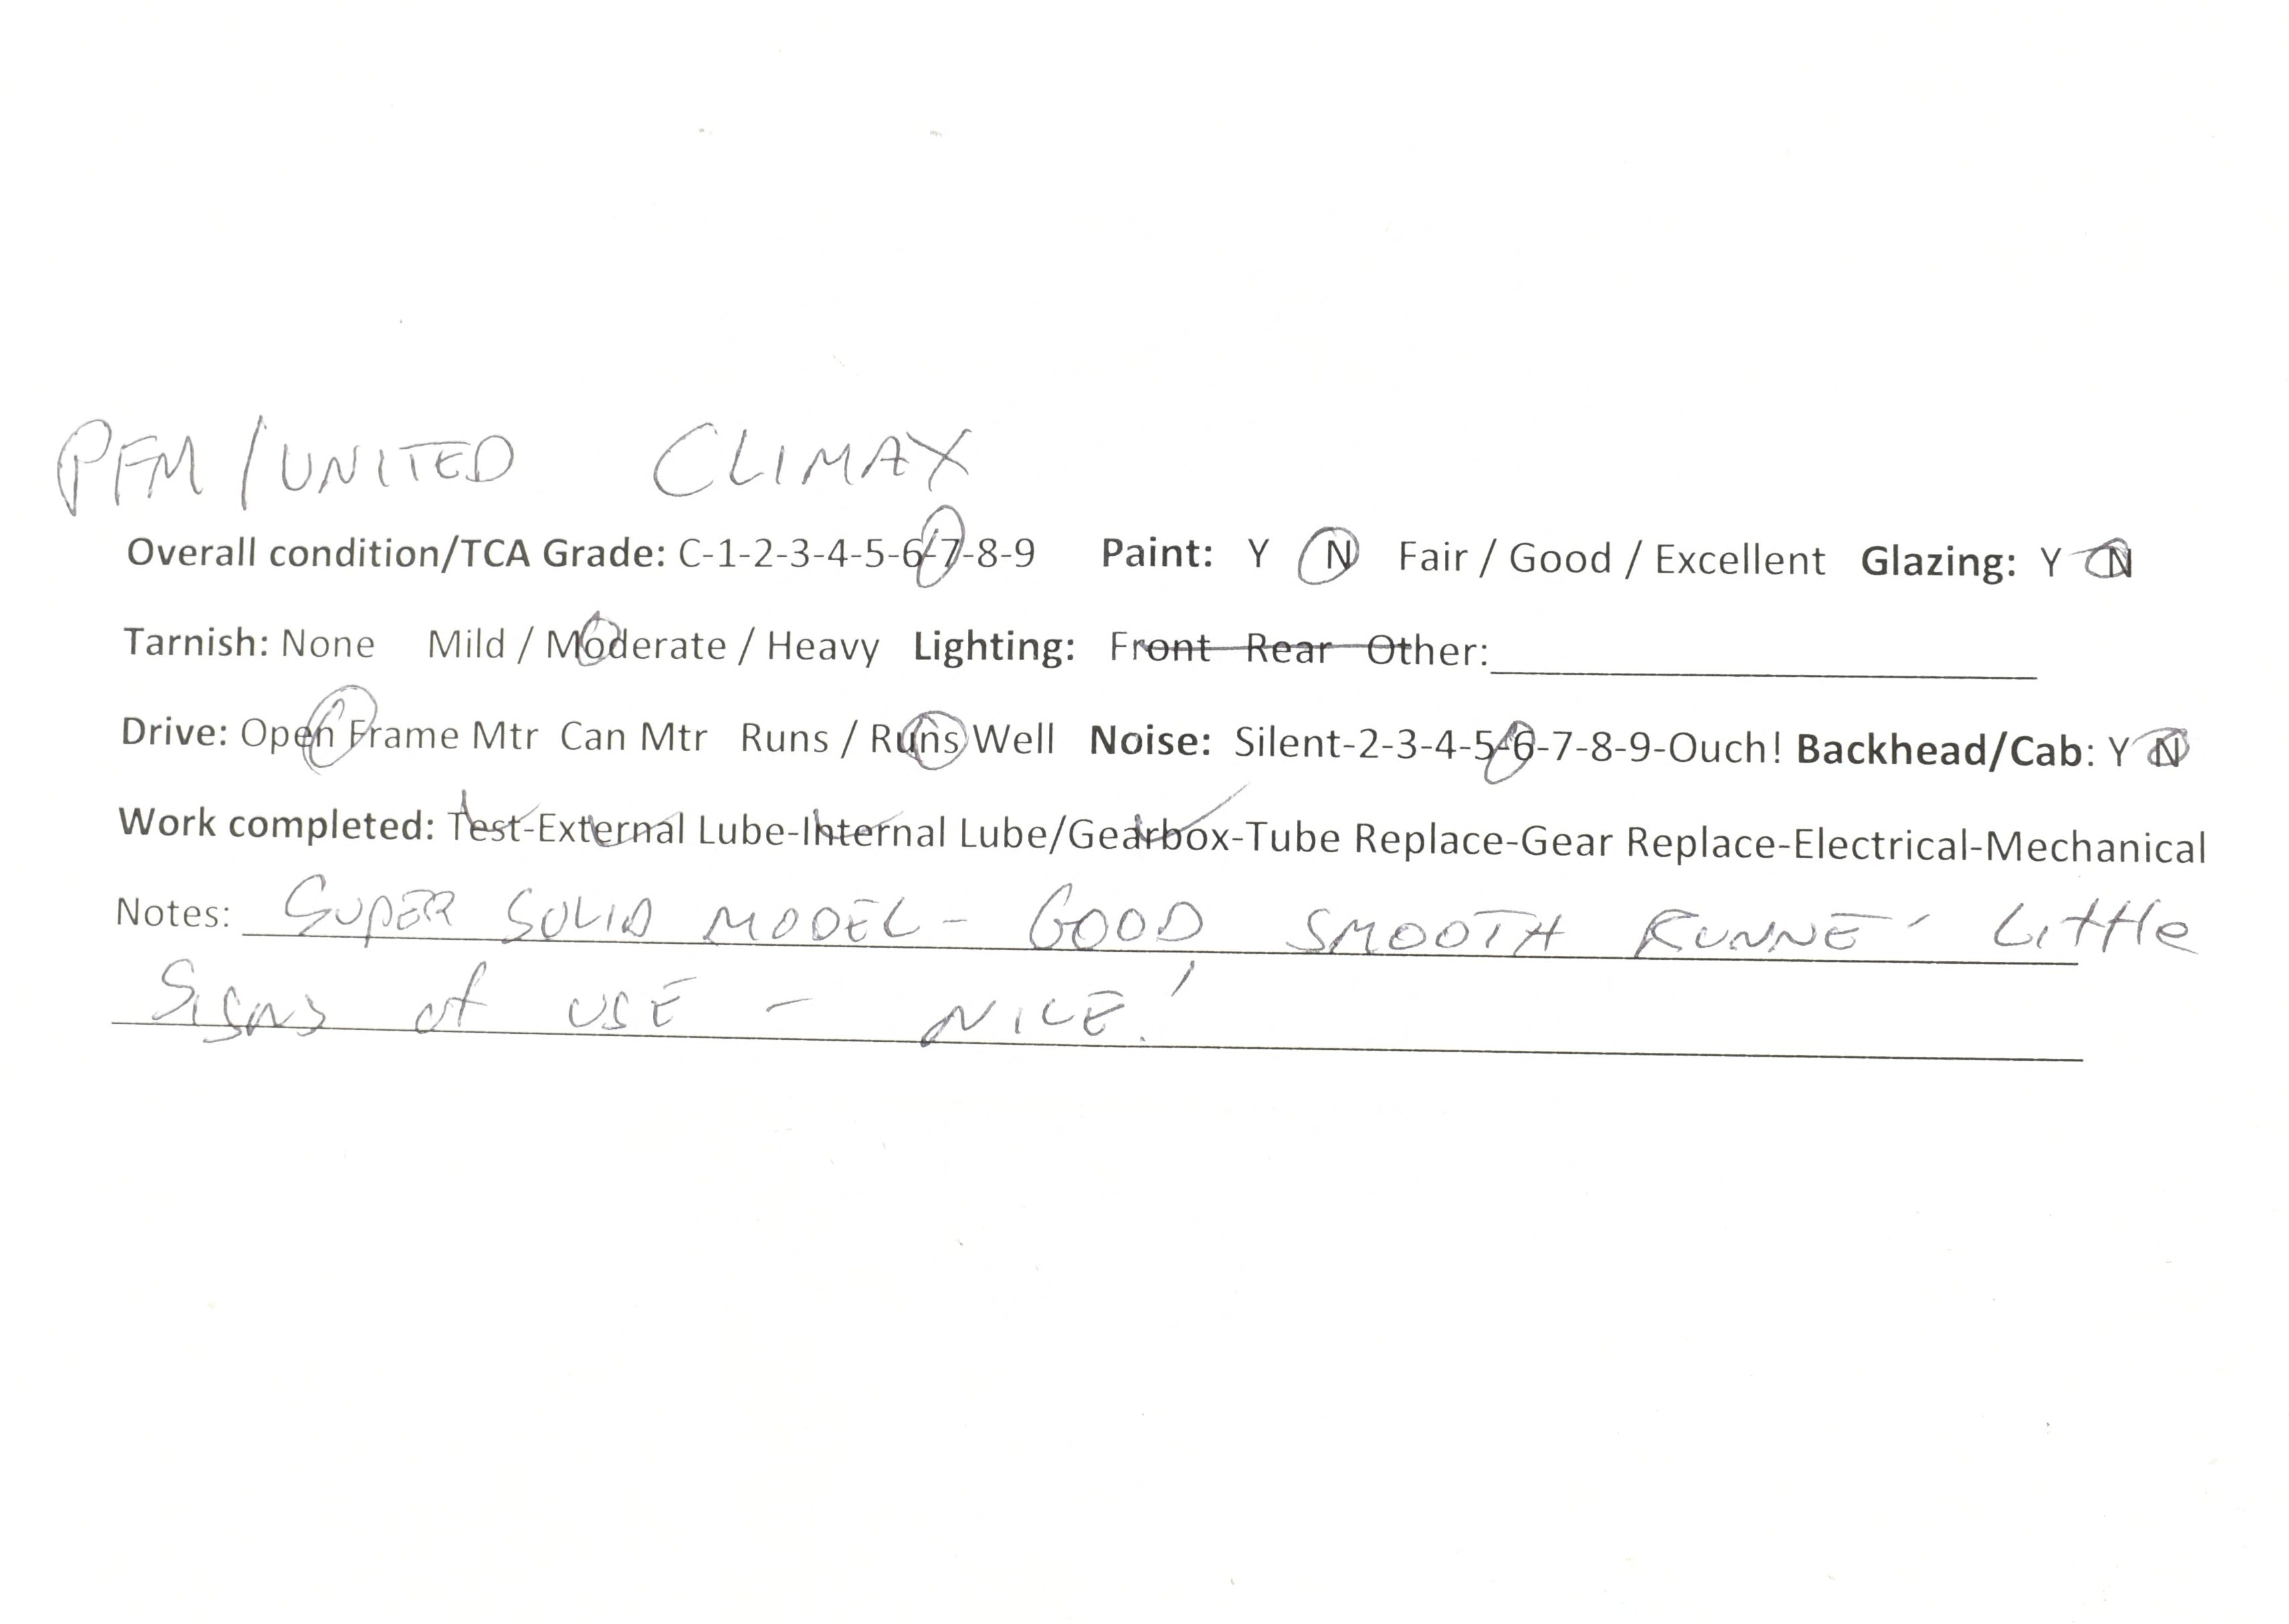 PFM / UNITED CLIMAX
Overall condition/TCA Grade: C-1-2-3-4-5-6-7-8-9 Paint: Y N Fair / Good / Excellent Glazing: Y N
Tarnish: None Mild / Moderate / Heavy Lighting: Front Rear Other:
Drive: Open Frame Mtr Can Mtr Runs / Runs Well Noise: Silent-2-3-4-5-6-7-8-9-Ouch! Backhead/Cab: Y N
Work completed: Test-External Lube-Internal Lube/Gearbox-Tube Replace-Gear Replace-Electrical-Mechanical
Notes: SUPER SOLID MODEL - GOOD SMOOTH RUNNE - Little
Signs of USE - NICE!